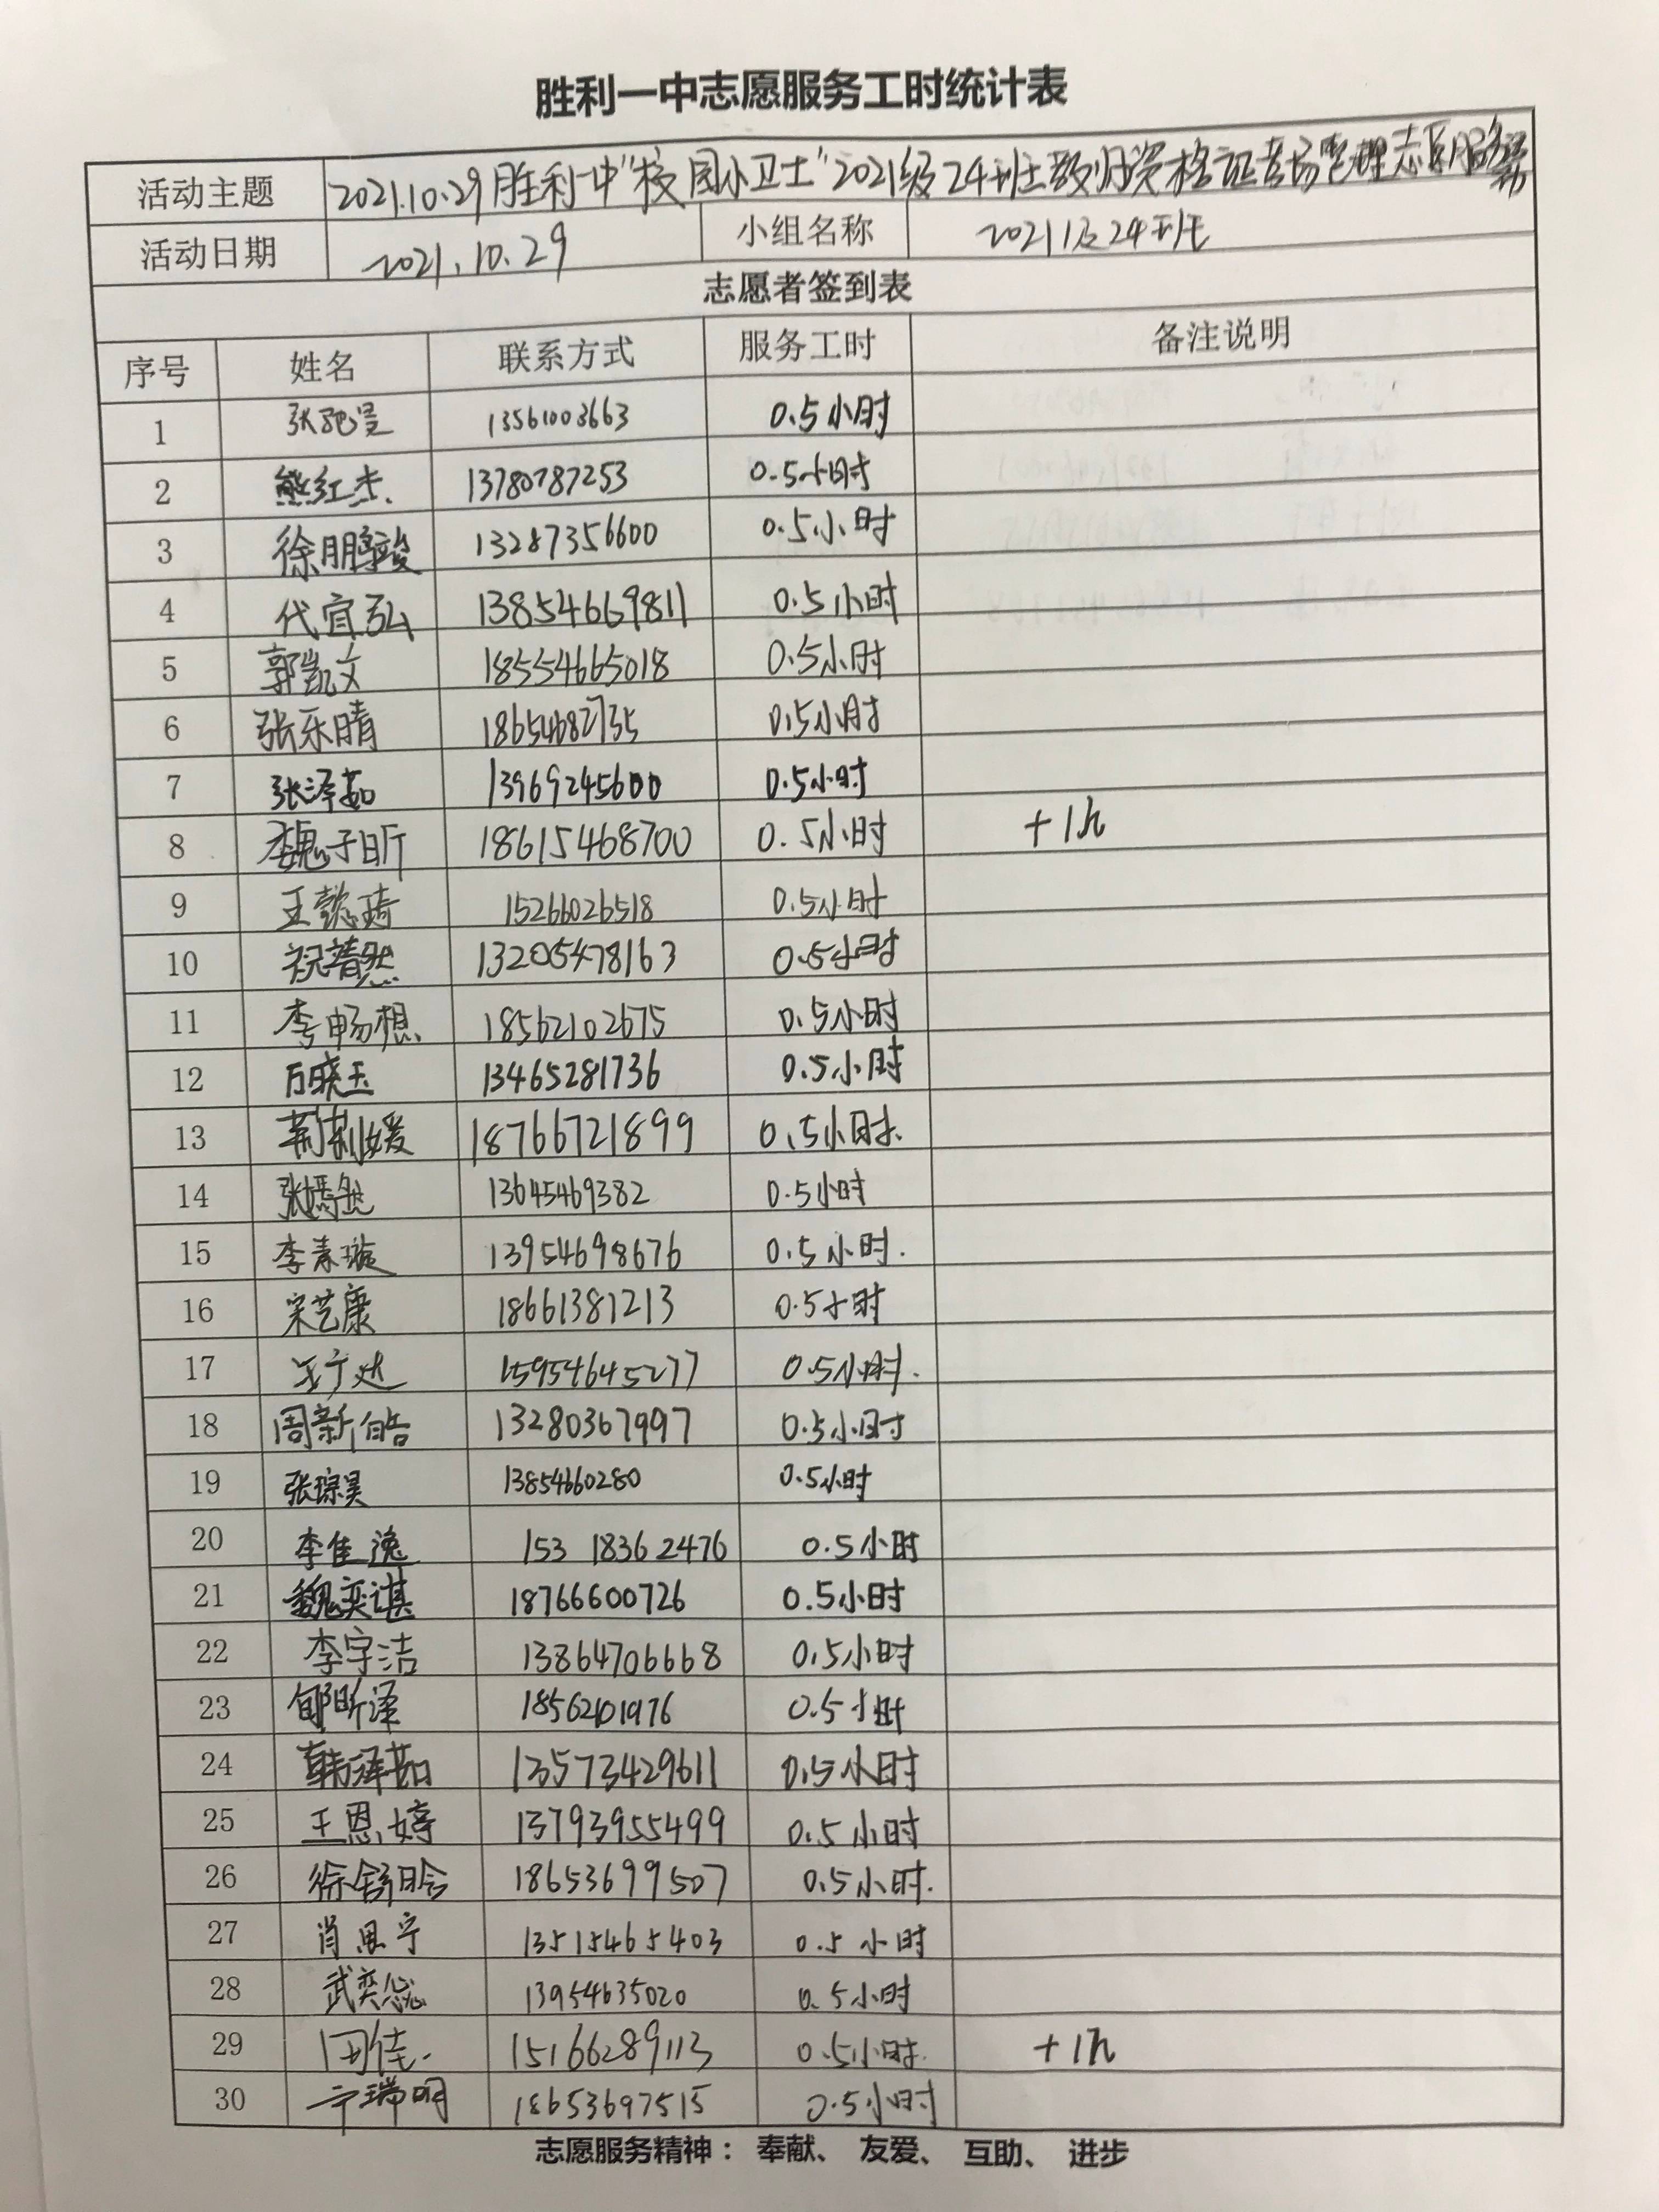 胜利一中志愿服务工时统计表
活动主题 2021.10.29胜利一中"校园小卫士"2021级24班教师资格证考场管理志愿服务
活动日期 2021.10.29 小组名称 2021级24班
志愿者签到表
序号 姓名 联系方式 服务工时 备注说明
1 13561003663 0.5小时
2 熊红杰 13780787253 0.5小时
3 徐鹏骏 13287356600 0.5小时
4 代宜弘 13854669811 0.5小时
5 郭凯文 18554665018 0.5小时
6 张乐晴 18654682735 0.5小时
7 张泽茹 13969245600 0.5小时
8 魏子昕 18615468700 0.5小时 +1h
9 王懿琦 15266026518 0.5小时
10 祝靖然 13205478163 0.5小时
11 李畅想 18562102675 0.5小时
12 万晓玉 13465281736 0.5小时
13 荊莉媛 18766721899 0.5小时.
14 张嫣然 13645469382 0.5小时
15 李素璇 13954698676 0.5小时.
16 宋艺康 18661381213 0.5小时
17 15954645277 0.5小时.
18 周新皓 13280367997 0.5小时
19 张琮昊 13854660280 0.5小时
20 李佳逸 153 1836 2476 0.5小时
21 魏奕谌 18766600726 0.5小时
22 李宇洁 13864706668 0.5小时
23 郇昕泽 18562101976 0.5小时
24 韩泽茹 13573429611 0.5小时
25 王恩婷 13793955499 0.5小时
26 徐舒晗 18653699507 0.5小时.
27 肖思宁 13515465403 0.5小时
28 武奕 13954635020 0.5小时
29 田佳 15166289113 0.5小时. +1h
30 宁瑞明 18653697515 0.5小时
志愿服务精神： 奉献、 友爱、 互助、 进步